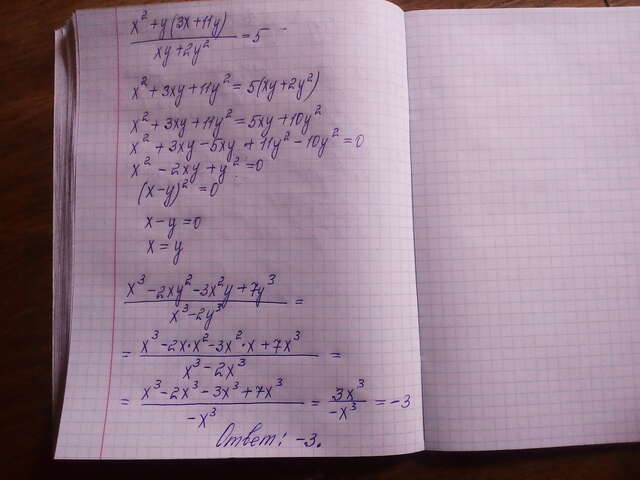 x² + y(3x+11y) / xy + 2y² = 5
x² + 3xy + 11y² = 5(xy + 2y²)
x² + 3xy + 11y² = 5xy + 10y²
x² + 3xy - 5xy + 11y² - 10y² = 0
x² - 2xy + y² = 0
(x-y)² = 0
x - y = 0
x = y
x³ - 2xy² - 3x²y + 7y³ / x³ - 2y³ =
= x³ - 2x·x² - 3x²·x + 7x³ / x³ - 2x³ =
= x³ - 2x³ - 3x³ + 7x³ / -x³ = 3x³ / -x³ = -3
Ответ: -3.